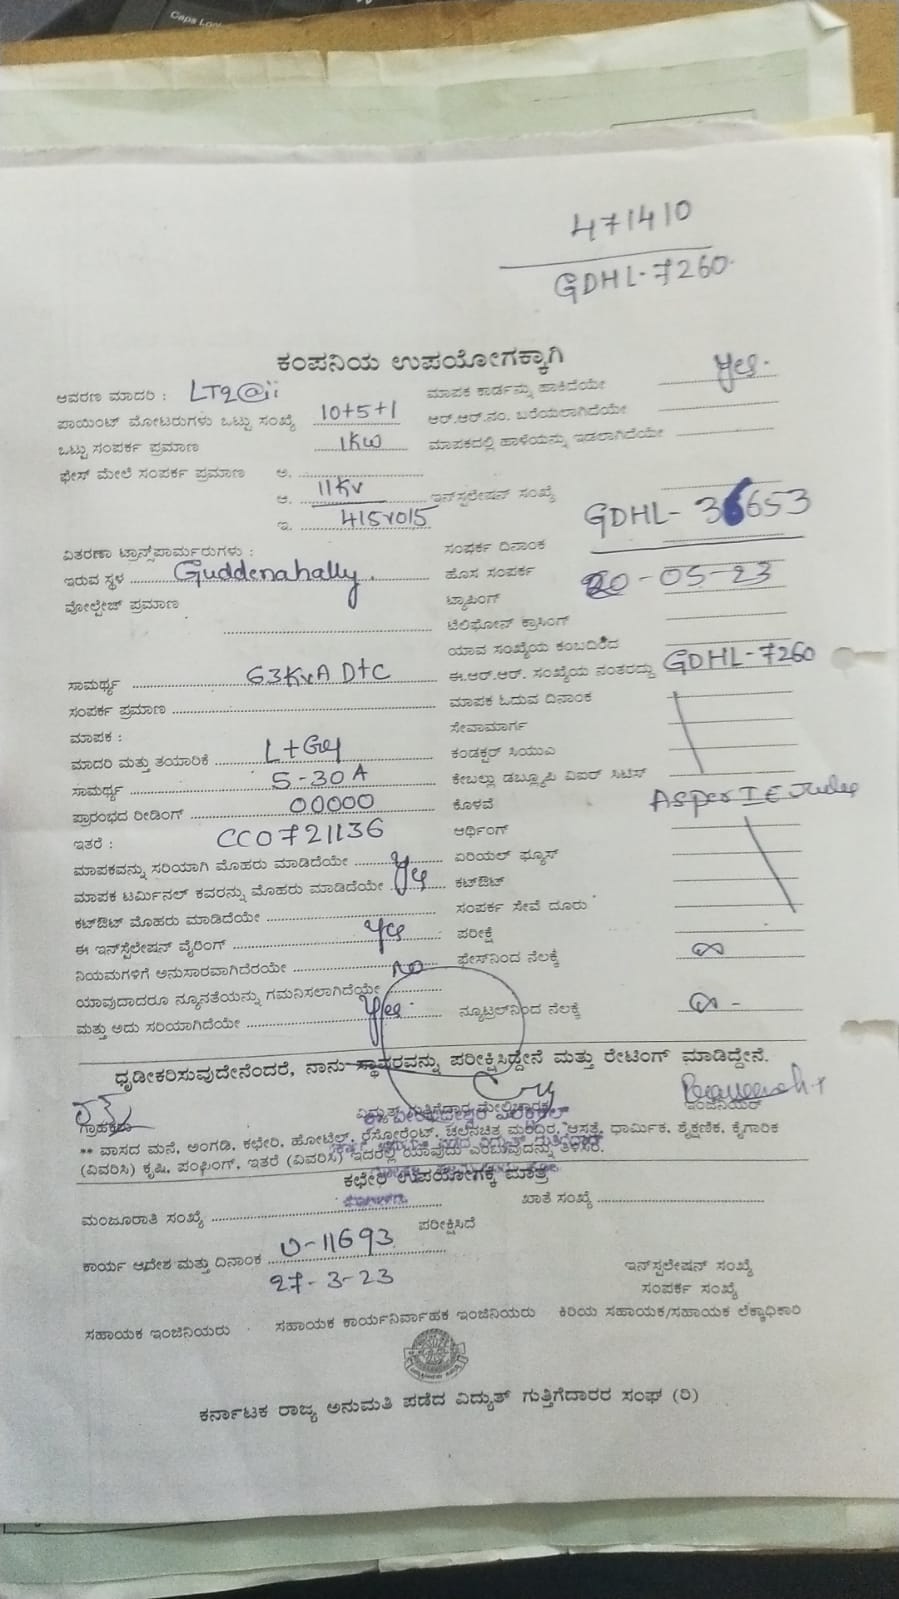 Caps Lo
471410
GDHL-7260
ಕಂಪನಿಯ ಉಪಯೋಗಕ್ಕಾಗಿ
ಆವರಣ ಮಾದರಿ : LT2@ii
ಮಾಪಕ ಕಾರ್ಡನ್ನು ಹಾಕಿದೆಯೇ Yes.
ಪಾಯಿಂಟ್ ಮೋಟರುಗಳು ಒಟ್ಟು ಸಂಖ್ಯೆ 10+5+1
ಆರ್.ಆರ್.ನಂ. ಬರೆಯಲಾಗಿದೆಯೇ
ಒಟ್ಟು ಸಂಪರ್ಕ ಪ್ರಮಾಣ 1KW
ಮಾಪಕದಲ್ಲಿ ಹಾಳೆಯನ್ನು ಇಡಲಾಗಿದೆಯೇ
ಫೇಸ್ ಮೇಲೆ ಸಂಪರ್ಕ ಪ್ರಮಾಣ ಅ.
ಆ. 11Kv
ಇನ್‌ಸ್ಟಲೇಷನ್ ಸಂಖ್ಯೆ GDHL- 36653
ಇ.
ವಿತರಣಾ ಟ್ರಾನ್ಸ್‌ಪಾರ್ಮರುಗಳು :
ಸಂಪರ್ಕ ದಿನಾಂಕ
ಇರುವ ಸ್ಥಳ Guddenahally.
ಹೊಸ ಸಂಪರ್ಕ 20-05-23
ವೋಲ್ಟೇಜ್ ಪ್ರಮಾಣ
ಟ್ಯಾಪಿಂಗ್
ಟೆಲಿಫೋನ್ ಕ್ರಾಸಿಂಗ್
ಯಾವ ಸಂಖ್ಯೆಯ ಕಂಬದಿಂದ
ಸಾಮರ್ಥ್ಯ 63KvA DTC
ಈ.ಆರ್.ಆರ್. ಸಂಖ್ಯೆಯ ನಂತರದ್ದು GDHL-7260
ಸಂಪರ್ಕ ಪ್ರಮಾಣ
ಮಾಪಕ ಓದುವ ದಿನಾಂಕ
ಮಾಪಕ :
ಸೇವಾಮಾರ್ಗ
ಮಾದರಿ ಮತ್ತು ತಯಾರಿಕೆ
ಕಂಡಕ್ಟರ್ ಸಿಯುಎ
ಸಾಮರ್ಥ್ಯ 5-30A
ಕೇಬಲ್ಲು ಡಬ್ಲ್ಯೂಪಿ ವಿಐರ್ ಸಿಟಿಸ್
ಪ್ರಾರಂಭದ ರೀಡಿಂಗ್ 00000
ಕೊಳವೆ As per I E rules
ಇತರೆ : CC0721136
ಆರ್ಥಿಂಗ್
ಮಾಪಕವನ್ನು ಸರಿಯಾಗಿ ಮೊಹರು ಮಾಡಿದೆಯೇ
ಏರಿಯಲ್ ಫ್ಯೂಸ್
ಮಾಪಕ ಟರ್ಮಿನಲ್ ಕವರನ್ನು ಮೊಹರು ಮಾಡಿದೆಯೇ Yes
ಕಟ್‌ಔಟ್
ಕಟ್‌ಔಟ್ ಮೊಹರು ಮಾಡಿದೆಯೇ
ಸಂಪರ್ಕ ಸೇವೆ ದೂರು
ಈ ಇನ್‌ಸ್ಟೆಲೇಷನ್ ವೈರಿಂಗ್ Yes
ಪರೀಕ್ಷೆ
ನಿಯಮಗಳಿಗೆ ಅನುಸಾರವಾಗಿದೆರಯೇ no
ಫ್ರೇಸ್‌ನಿಂದ ನೆಲಕ್ಕೆ ∞
ಯಾವುದಾದರೂ ನ್ಯೂನತೆಯನ್ನು ಗಮನಿಸಲಾಗಿದೆಯೇ
ಮತ್ತು ಅದು ಸರಿಯಾಗಿದೆಯೇ Yes.
ನ್ಯೂಟ್ರಲ್‌ನಿಂದ ನೆಲಕ್ಕೆ ∞ -
ಧೃಡೀಕರಿಸುವುದೇನೆಂದರೆ, ನಾನು ಸ್ಥಾವರವನ್ನು ಪರೀಕ್ಷಿಸಿದ್ದೇನೆ ಮತ್ತು ರೇಟಿಂಗ್ ಮಾಡಿದ್ದೇನೆ.
ಗ್ರಾಹಕರು
ಇಂಪನಿಯರ್
** ವಾಸದ ಮನೆ, ಅಂಗಡಿ, ಕಛೇರಿ, ಹೋಟೆಲ್, ರೆಸ್ಟೋರೆಂಟ್, ಚಲನಚಿತ್ರ ಮಂದಿರ, ಆಸ್ಪತ್ರೆ, ಧಾರ್ಮಿಕ, ಶೈಕ್ಷಣಿಕ, ಕೈಗಾರಿಕ
(ವಿವರಿಸಿ) ಕೃಷಿ, ಪಂಪಿಂಗ್, ಇತರೆ (ವಿವರಿಸಿ) ಇದರಲ್ಲಿ ಯಾವುದು ಎಂಬುವುದನ್ನು ತಿಳಿಸಿರಿ.
ಕಛೇರಿ ಉಪಯೋಗಕ್ಕೆ ಮಾತ್ರ
ಮಂಜೂರಾತಿ ಸಂಖ್ಯೆ
ಖಾತೆ ಸಂಖ್ಯೆ
ಪರೀಕ್ಷಿಸಿದೆ
ಕಾರ್ಯ ಆದೇಶ ಮತ್ತು ದಿನಾಂಕ 0-11693
27-3-23
ಇನ್‌ಸ್ಟಲೇಷನ್ ಸಂಖ್ಯೆ
ಸಂಪರ್ಕ ಸಂಖ್ಯೆ
ಸಹಾಯಕ ಇಂಜಿನಿಯರು ಸಹಾಯಕ ಕಾರ್ಯನಿರ್ವಾಹಕ ಇಂಜಿನಿಯರು ಕಿರಿಯ ಸಹಾಯಕ/ಸಹಾಯಕ ಲೆಕ್ಕಾಧಿಕಾರಿ
ಕರ್ನಾಟಕ ರಾಜ್ಯ ಅನುಮತಿ ಪಡೆದ ವಿದ್ಯುತ್ ಗುತ್ತಿಗೆದಾರರ ಸಂಘ (ರಿ)